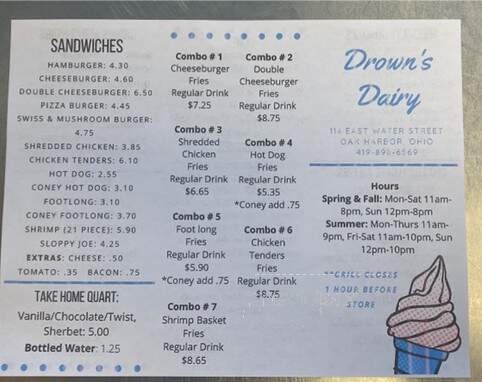 SANDWICHES
HAMBURGER: 4.30
CHEESEBURGER: 4.60
DOUBLE CHEESEBURGER: 6.50
PIZZA BURGER: 4.45
SWISS & MUSHROOM BURGER:
4.75
SHREDDED CHICKEN: 3.85
CHICKEN TENDERS: 6.10
HOT DOG: 2.55
CONEY HOT DOG: 3.10
FOOTLONG: 3.10
CONEY FOOTLONG: 3.70
SHRIMP (21 PIECE): 5.90
SLOPPY JOE: 4.25
EXTRAS: CHEESE: .50
TOMATO: .35 BACON: .75
TAKE HOME QUART:
Vanilla/Chocolate/Twist,
Sherbet: 5.00
Bottled Water: 1.25
Combo # 1
Cheeseburger
Fries
Regular Drink
$7.25
Combo # 3
Shredded
Chicken
Fries
Regular Drink
$6.65
Combo # 5
Foot long
Fries
Regular Drink
$5.90
*Coney add .75
Combo # 7
Shrimp Basket
Fries
Regular Drink
$8.65
Combo # 2
Double
Cheeseburger
Fries
Regular Drink
$8.75
Combo # 4
Hot Dog
Fries
Regular Drink
$5.35
*Coney add .75
Combo # 6
Chicken
Tenders
Fries
Regular Drink
$8.75
Drown's
Dairy
114 EAST WATER STREET
OAK HARBOR, OHIO
419-898-6569
Hours
Spring & Fall: Mon-Sat 11am-
8pm, Sun 12pm-8pm
Summer: Mon-Thurs 11am-
9pm, Fri-Sat 11am-10pm, Sun
12pm-10pm
**GRILL CLOSES
1 HOUR BEFORE
STORE